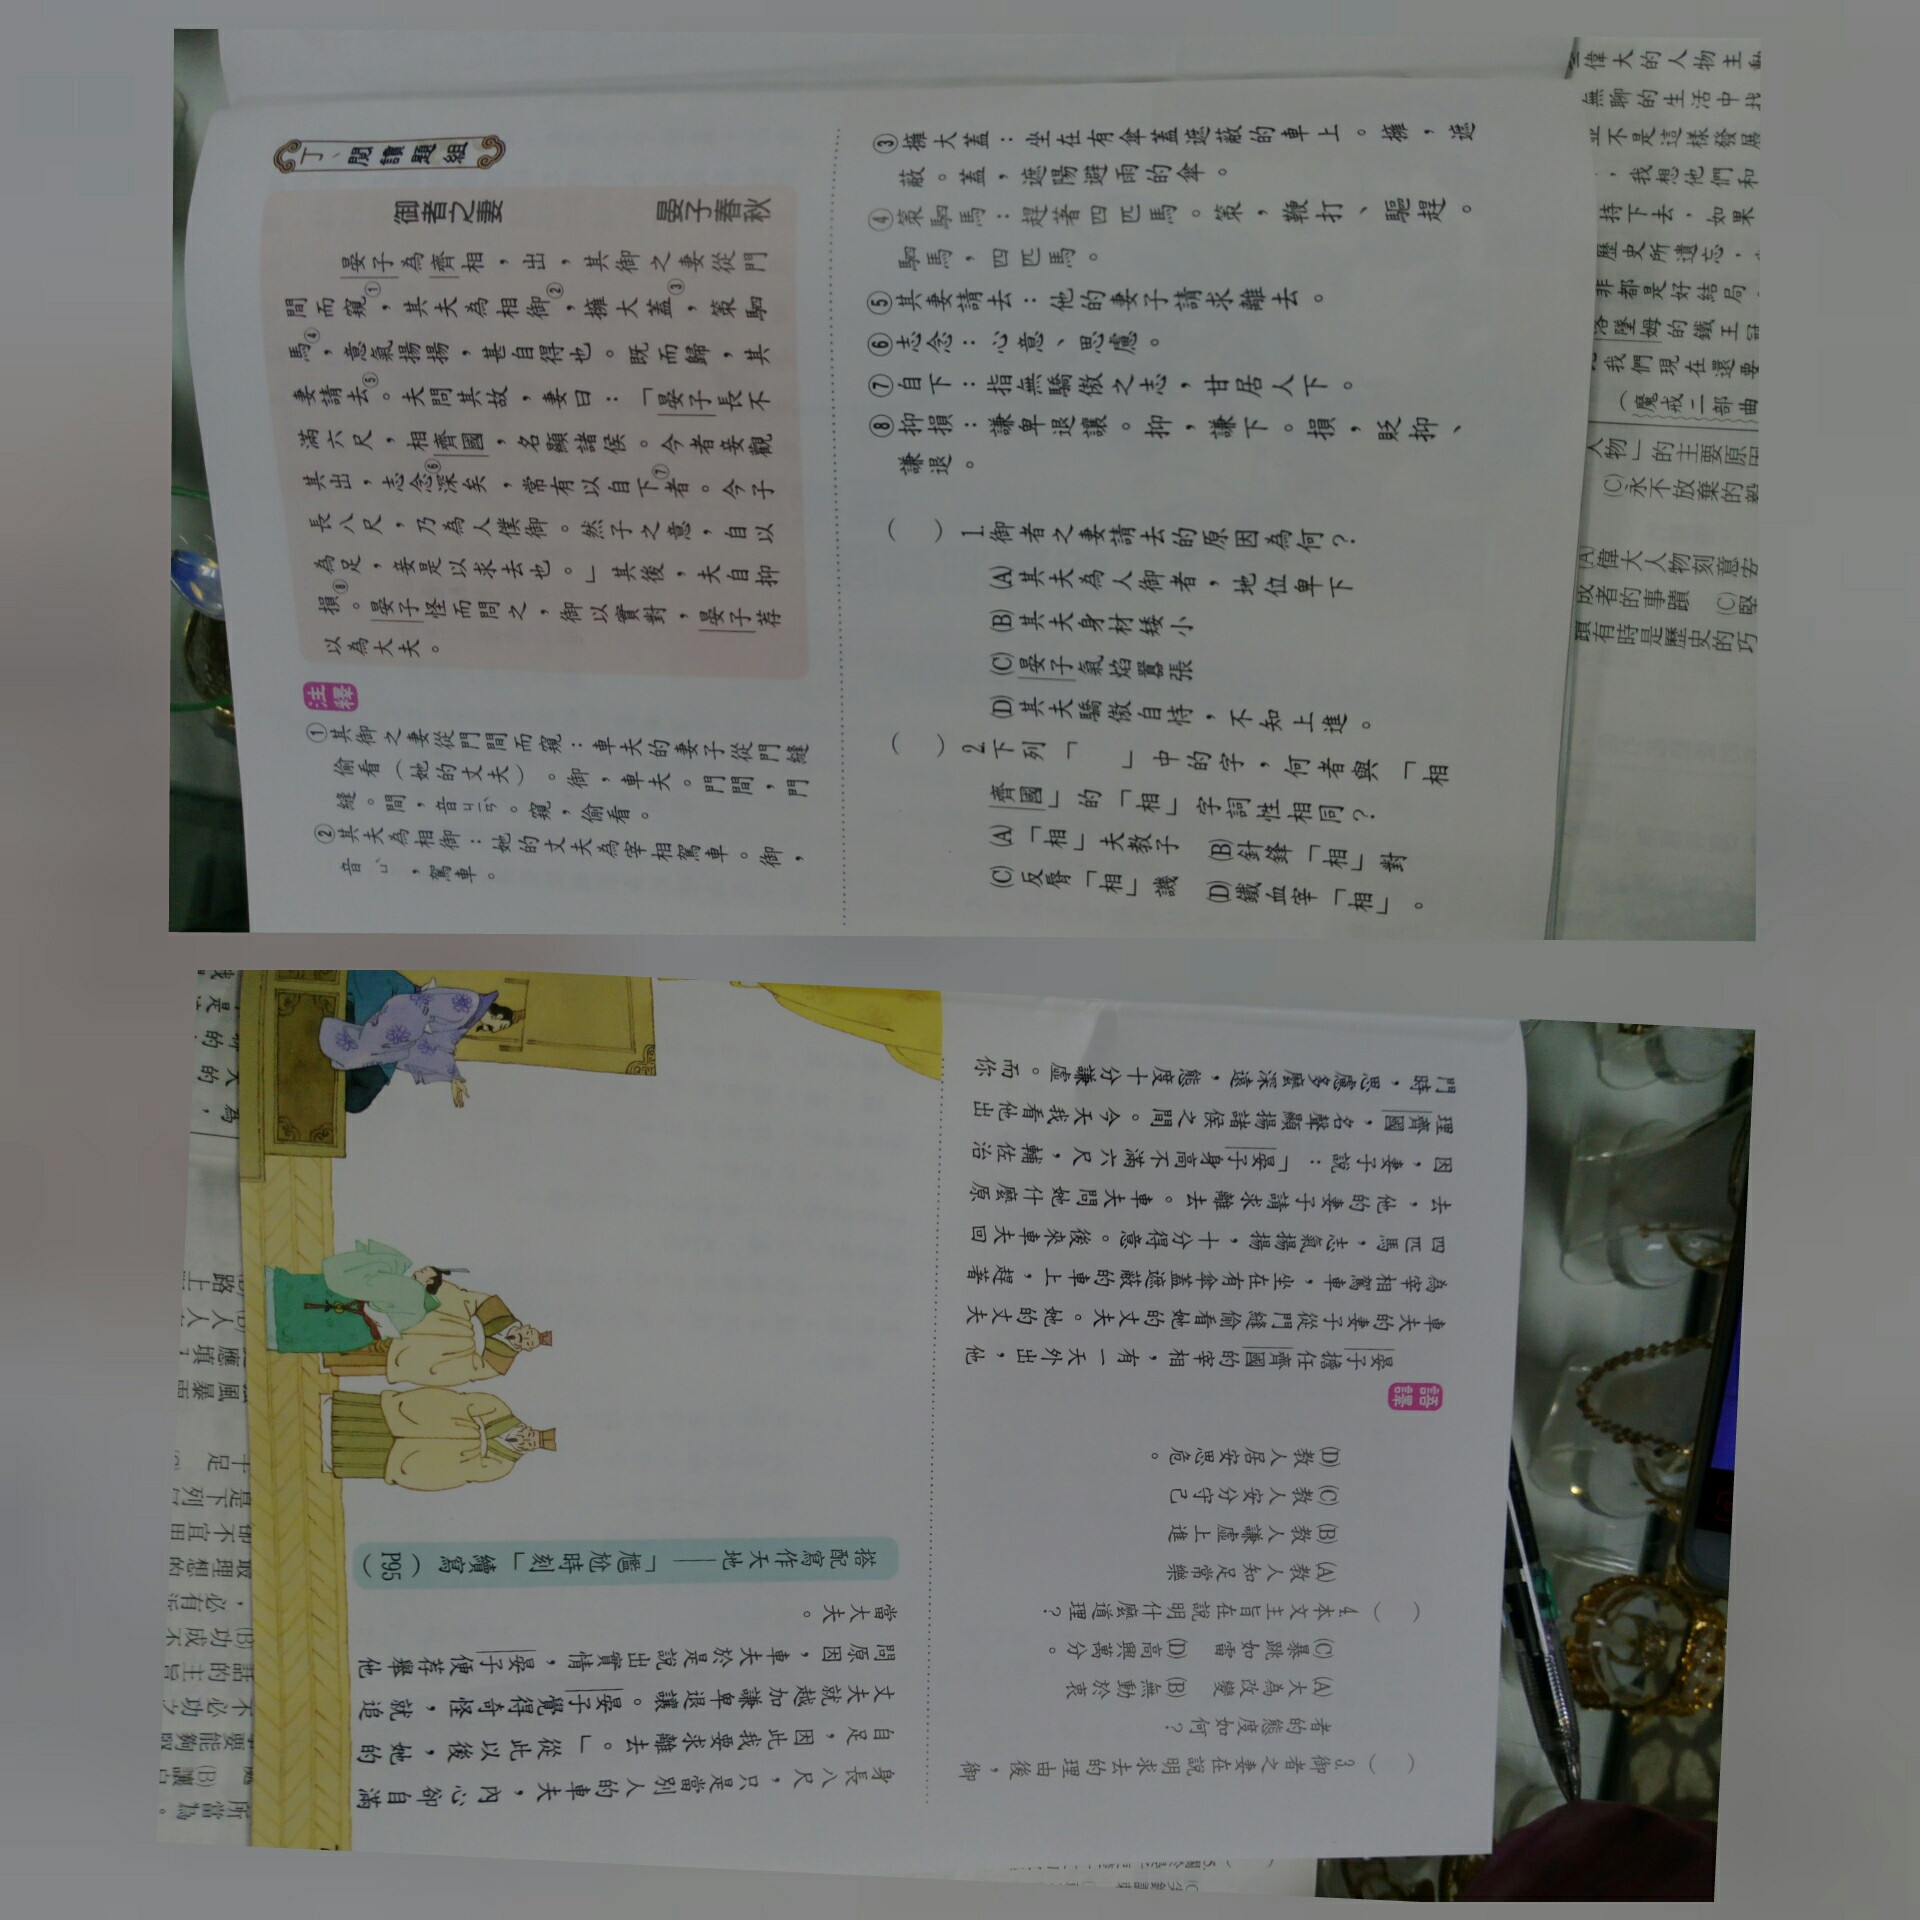 丁、閱讀題組
御者之妻
晏子春秋
晏子為齊相，出，其御之妻從門
間而窺①，其夫為相御②，擁大蓋③，策駟
馬④，意氣揚揚，甚自得也。既而歸，其
妻請去⑤。夫問其故，妻曰：「晏子長不
滿六尺，相齊國，名顯諸侯。今者妾觀
其出，志念深矣⑥，常有以自下者⑦。今子
長八尺，乃為人僕御。然子之意，自以
為足，妾是以求去也。」其後，夫自抑
損⑧。晏子怪而問之，御以實對，晏子荐
以為大夫。
注釋
①其御之妻從門間而窺：車夫的妻子從門縫
偷看（她的丈夫）。御，車夫。門間，門
縫。間，音ㄐㄧㄢˋ。窺，偷看。
②其夫為相御：她的丈夫為宰相駕車。御，
音ㄩˋ，駕車。
③擁大蓋：坐在有傘蓋遮蔽的車上。擁，遮
蔽。蓋，遮陽避雨的傘。
④策駟馬：趕著四匹馬。策，鞭打、驅趕。
駟馬，四匹馬。
⑤其妻請去：他的妻子請求離去。
⑥志念：心意、思慮。
⑦自下：指無驕傲之志，甘居人下。
⑧抑損：謙卑退讓。抑，謙下。損，貶抑、
謙退。
（　）1.御者之妻請去的原因為何？
(A)其夫為人御者，地位卑下
(B)其夫身材矮小
(C)晏子氣焰囂張
(D)其夫驕傲自恃，不知上進。
（　）2.下列「　」中的字，何者與「相
齊國」的「相」字詞性相同？
(A)「相」夫教子　(B)針鋒「相」對
(C)反脣「相」譏　(D)鐵血宰「相」。
偉大的人物主
無聊的生活中找
不是這樣發展
，我想他們和
持下去，如果
歷史所遺忘，
非都是好結局
墜姆的鐵王
我們現在還要
（魔戒二部曲
人物」的主要原因
(C)永不放棄的
(A)偉大人物刻意安
成者的事蹟　(C)堅
蹟有時是歷史的巧
（　）3.御者之妻在說明求去的理由後，御
者的態度如何？
(A)大為改變　(B)無動於衷
(C)暴跳如雷　(D)高興萬分。
（　）4.本文主旨在說明什麼道理？
(A)教人知足常樂
(B)教人謙虛上進
(C)教人安分守己
(D)教人居安思危。
語譯
晏子擔任齊國的宰相，有一天外出，他
車夫的妻子從門縫偷看她的丈夫。她的丈夫
為宰相駕車，坐在有傘蓋遮蔽的車上，趕著
四匹馬，志氣揚揚，十分得意。後來車夫回
去，他的妻子請求離去。車夫問她什麼原
因，妻子說：「晏子身高不滿六尺，輔佐治
理齊國，名聲顯揚諸侯之間。今天我看他出
門時，思慮多麼深遠，態度十分謙虛。而你
身長八尺，只是當別人的車夫，內心卻自滿
自足，因此我要求離去。」從此以後，她的
丈夫就越加謙卑退讓。晏子覺得奇怪，就追
問原因，車夫於是說出實情，晏子便荐舉他
當大夫。
搭配寫作天地——「尷尬時刻」續寫（P95）
所當為。
(B)讓
要能夠
不必功
話的主
(B)功成不
，必有
取理想的
卻不宜
是下列
十足
風暴
應填
(B)人人
路上